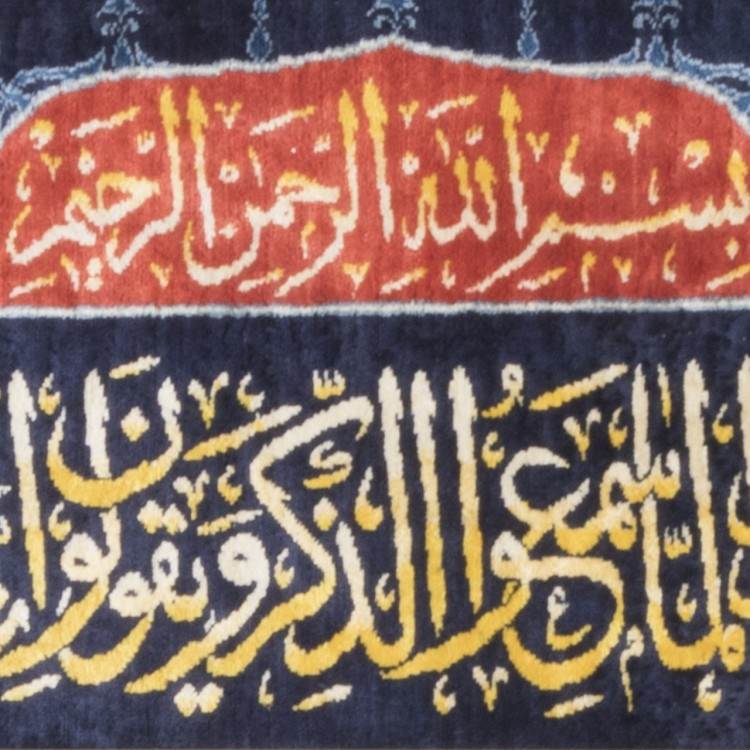 بِسْمِ اللَّهِ الرَّحْمَنِ الرَّحِيمِ
لَمَّا سَمِعُوا الذِّكْرَ وَيَقُولُونَ